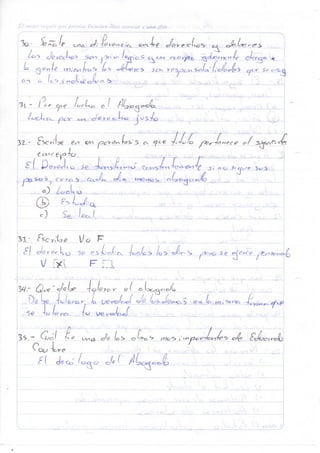 30- Señale una diferencia entre derechos y deberes
Los derechos son privilegios que un cuerpo
la gente mientras los deberes son responsabilidades que se
a los individuos
31- Por que lucha el Abogado
lucha por un derecho justo
32- Escriba en un parentesis a que titulo pertenece el siguiente
concepto
El Derecho se transforma constantemente, si no sigue sus
pasos, seras cada dia menos abogado
a) Lucha
b) Estudia
c) Se leal
33- Escribe V o F
El derecho se estudia todos los dias, pero se ejerce pensando
V X F
34- Que debe tolerar el abogado
Debe tolerar la verdad de los demas en la misma forma que
se tolera tu verdad
35- Cuál fue una de las obras mas importantes de Eduardo
Couture
El decalogo del Abogado